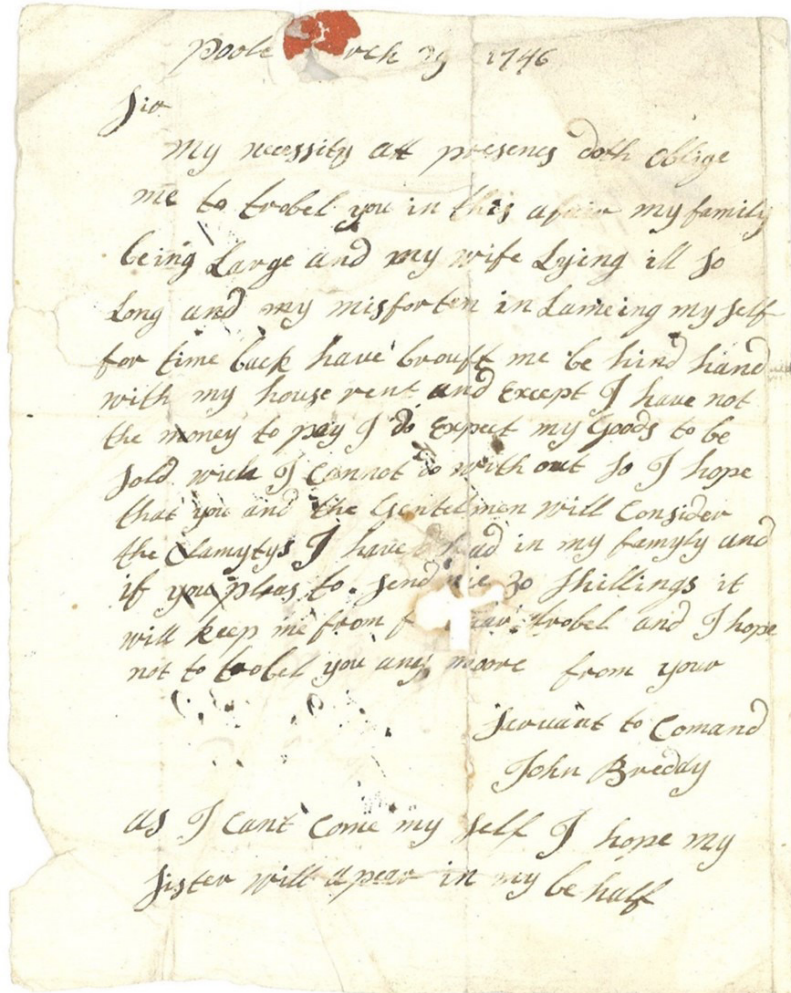 Poole rch 29 1746
Sir
My necessity att presents doth oblige
me to trobel you in this afair my family
being Large and my wife Lying ill so
Long and my misforten in Lameing my self
for time back have brouft me be hind hand
with my house rent and Except I have not
the money to pay I do Expect my Goods to be
sold wich I Cannot do with out so I hope
that you and the Gentelmen will Consider
the Clamytys I have had in my famyly and
if you pleas to send me 30 shillings it
will keep me from trobel and I hope
not to trobel you any moore from your
servant to Comand
John Breddy
as I Cant Come my self I hope my
sister will apear in my be half